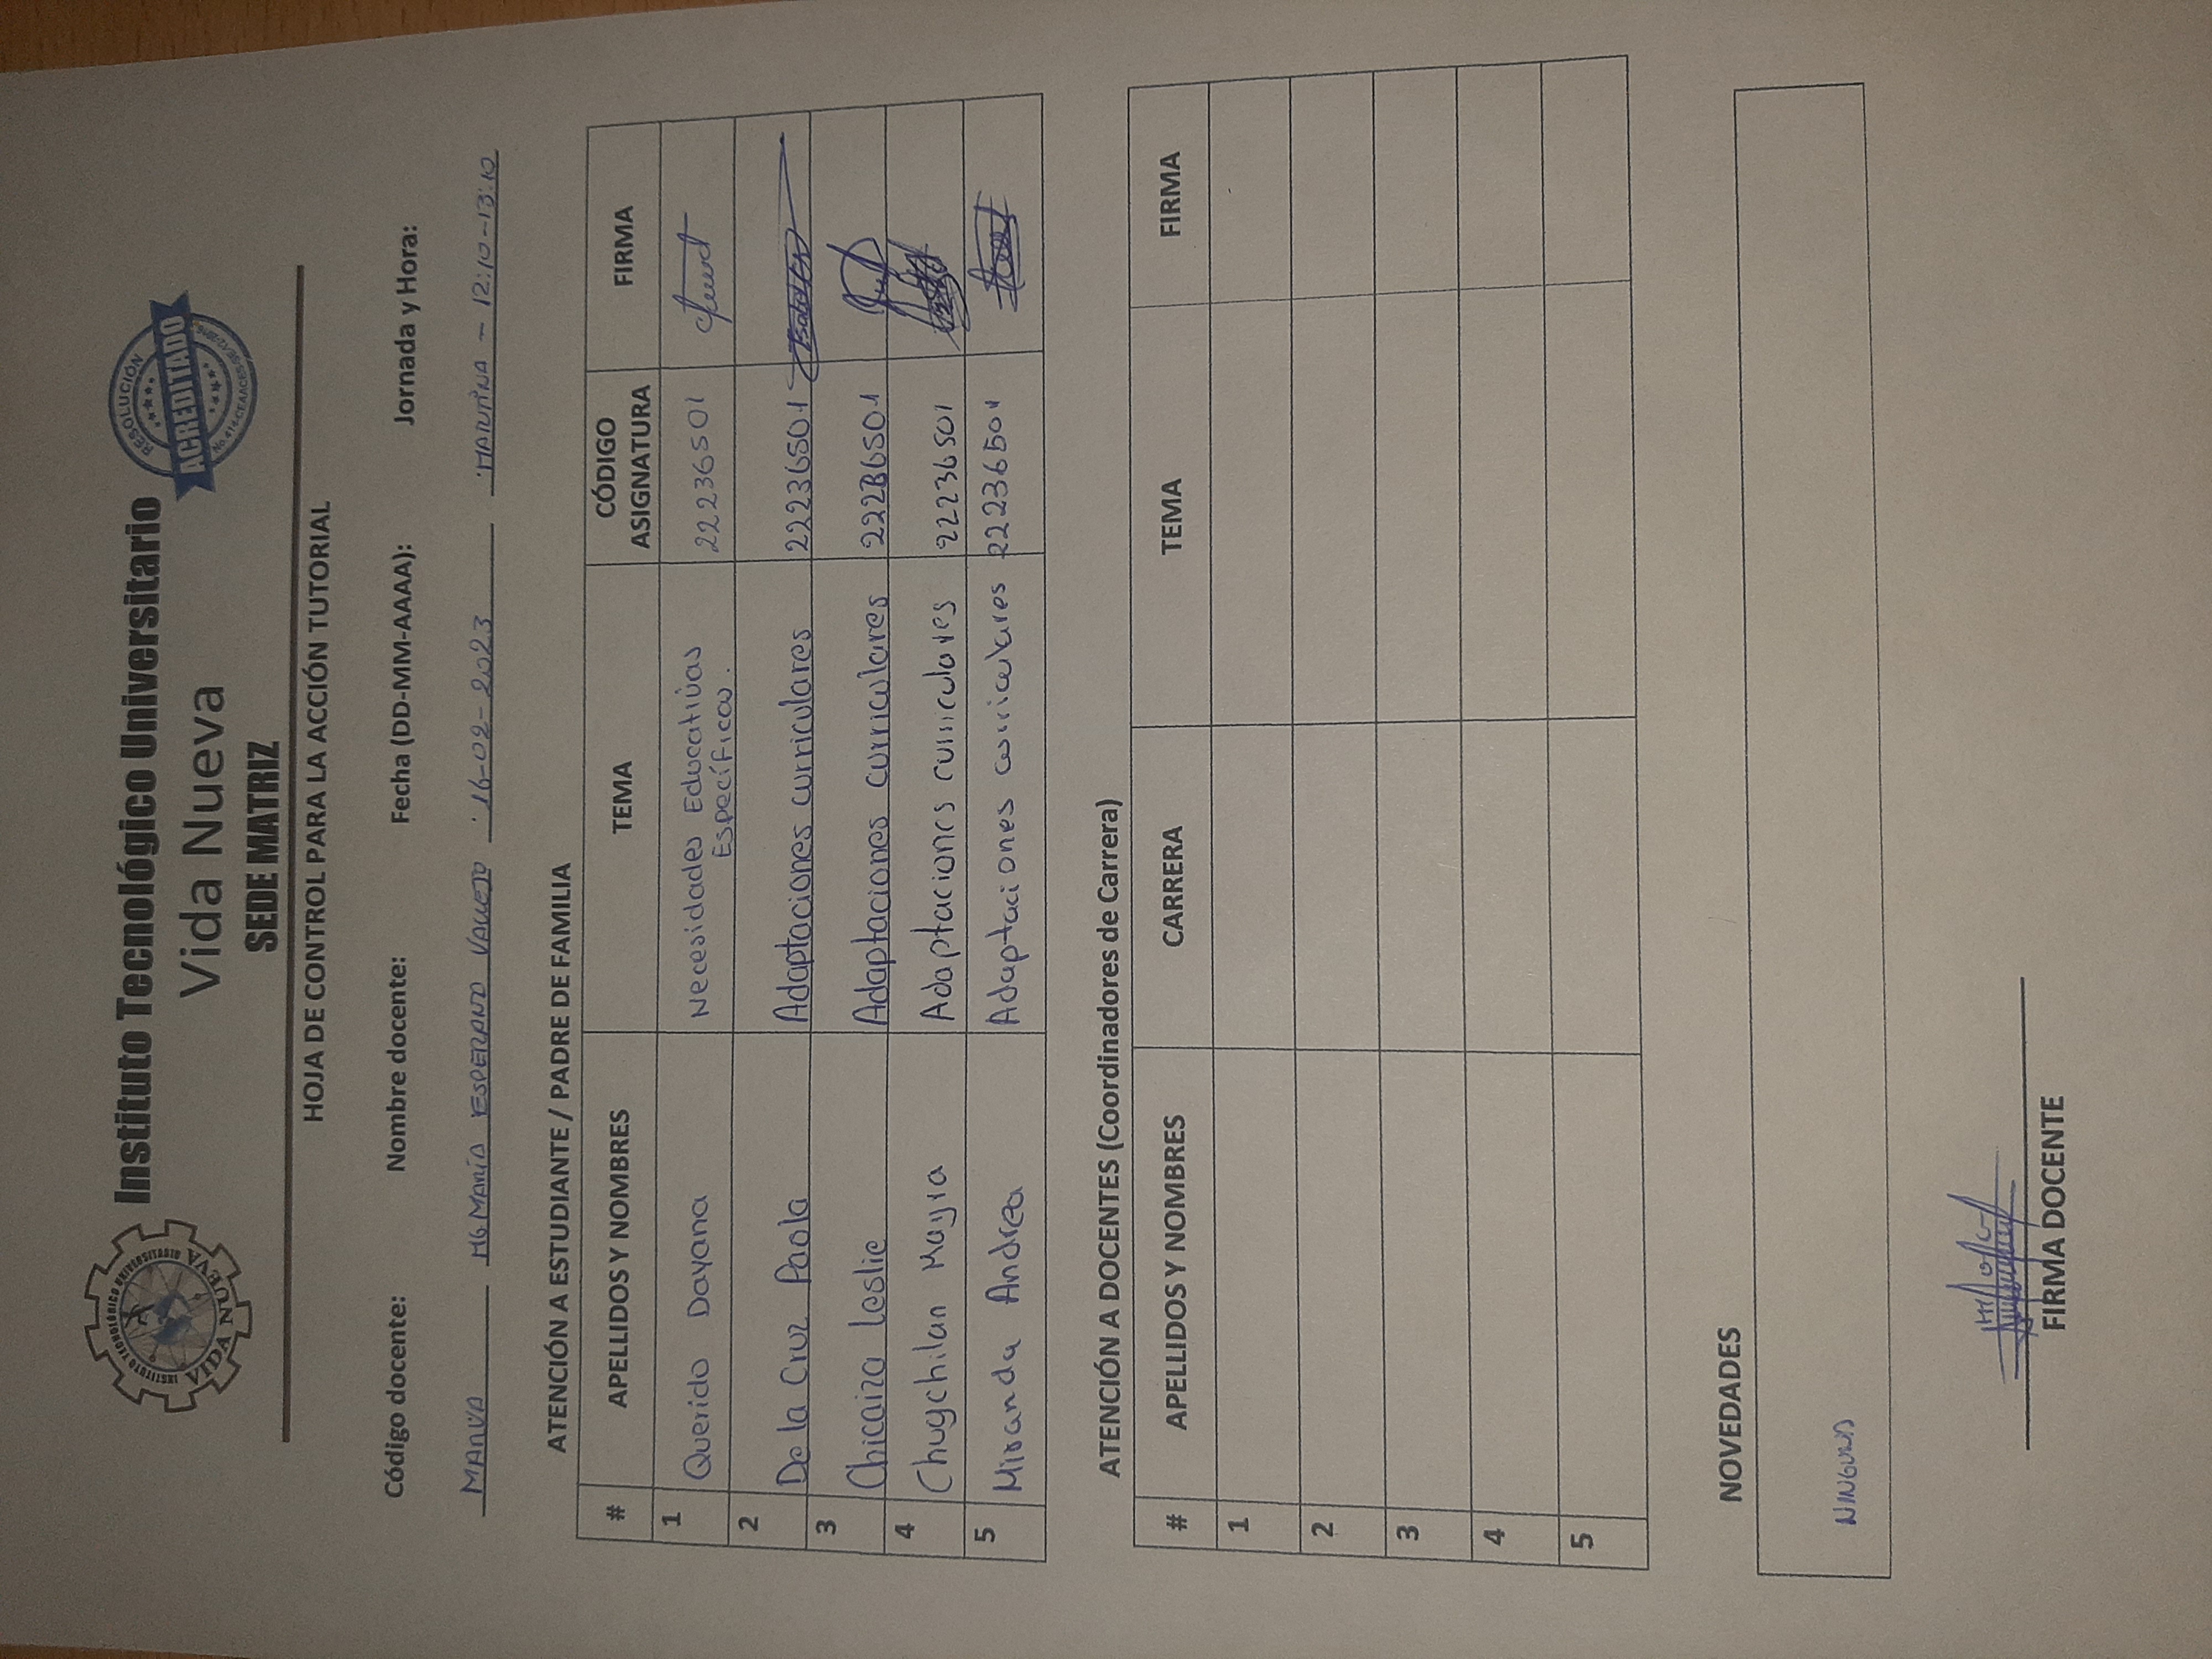 INSTITUTO TECNOLÓGICO UNIVERSITARIO
VIDA NUEVA
Instituto Tecnológico Universitario
Vida Nueva
SEDE MATRIZ
RESOLUCIÓN
ACREDITADO
HOJA DE CONTROL PARA LA ACCIÓN TUTORIAL
Código docente: Nombre docente: Fecha (DD-MM-AAAA): Jornada y Hora:
MARVA MG MARÍA ESPERANZA VALLEJO 16-02-2023 MATUTINA - 12:10-13:10
ATENCIÓN A ESTUDIANTE / PADRE DE FAMILIA
# APELLIDOS Y NOMBRES TEMA CÓDIGO ASIGNATURA FIRMA
1 Querido Dayana Necesidades Educativas Específicas. 22236501
2 De la Cruz Paola Adaptaciones curriculares 22236501
3 Chicaiza Leslie Adaptaciones curriculares 22236501
4 Chugchilan Mayra Adaptaciones curriculares 22236501
5 Miranda Andrea Adaptaciones curriculares 22236501
ATENCIÓN A DOCENTES (Coordinadores de Carrera)
# APELLIDOS Y NOMBRES CARRERA TEMA FIRMA
1
2
3
4
5
NOVEDADES
NINGUNA
FIRMA DOCENTE